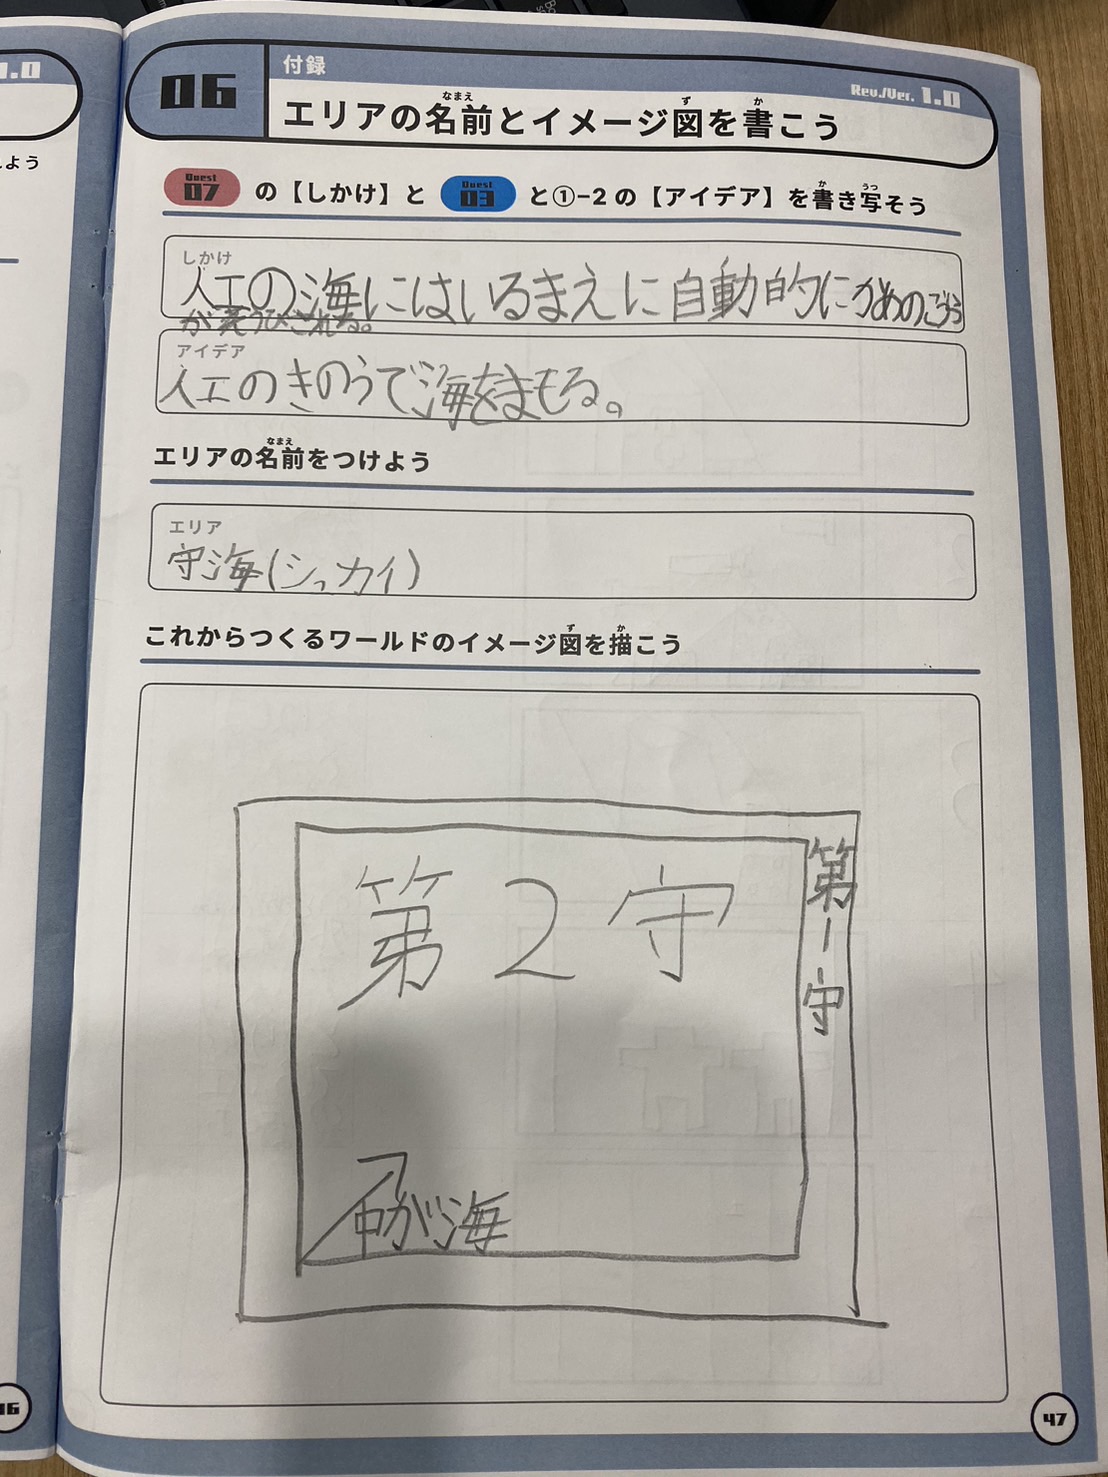 1.0
れよう
06
付録
Rev./Ver. 1.0
エリアの名前とイメージ図を書こう
なまえ
ず
か
Quest 07 の【しかけ】と Quest 03 と①-2の【アイデア】を書き写そう
か
うつ
しかけ
人工の海にはいるまえに自動的にかめのごうら
がそうびされる。
アイデア
人工のきのうで海をまもる。
エリアの名前をつけよう
なまえ
エリア
守海(シュカイ)
これからつくるワールドのイメージ図を描こう
ず
か
第2守
第1守
中が海
46
47